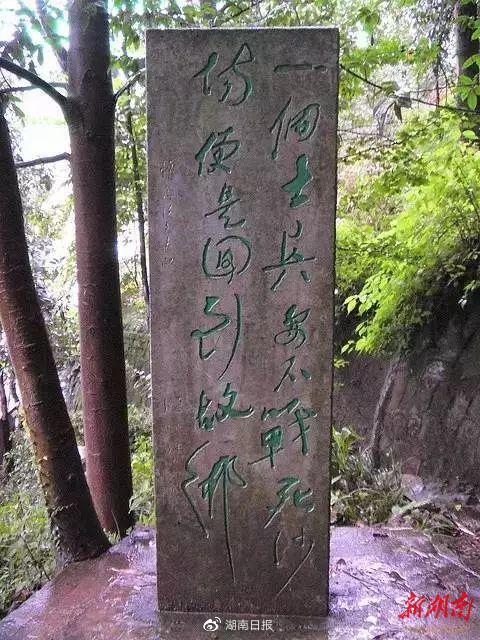 一個士兵要不戰死沙
场便是回到故鄉
新湖南
湖南日报